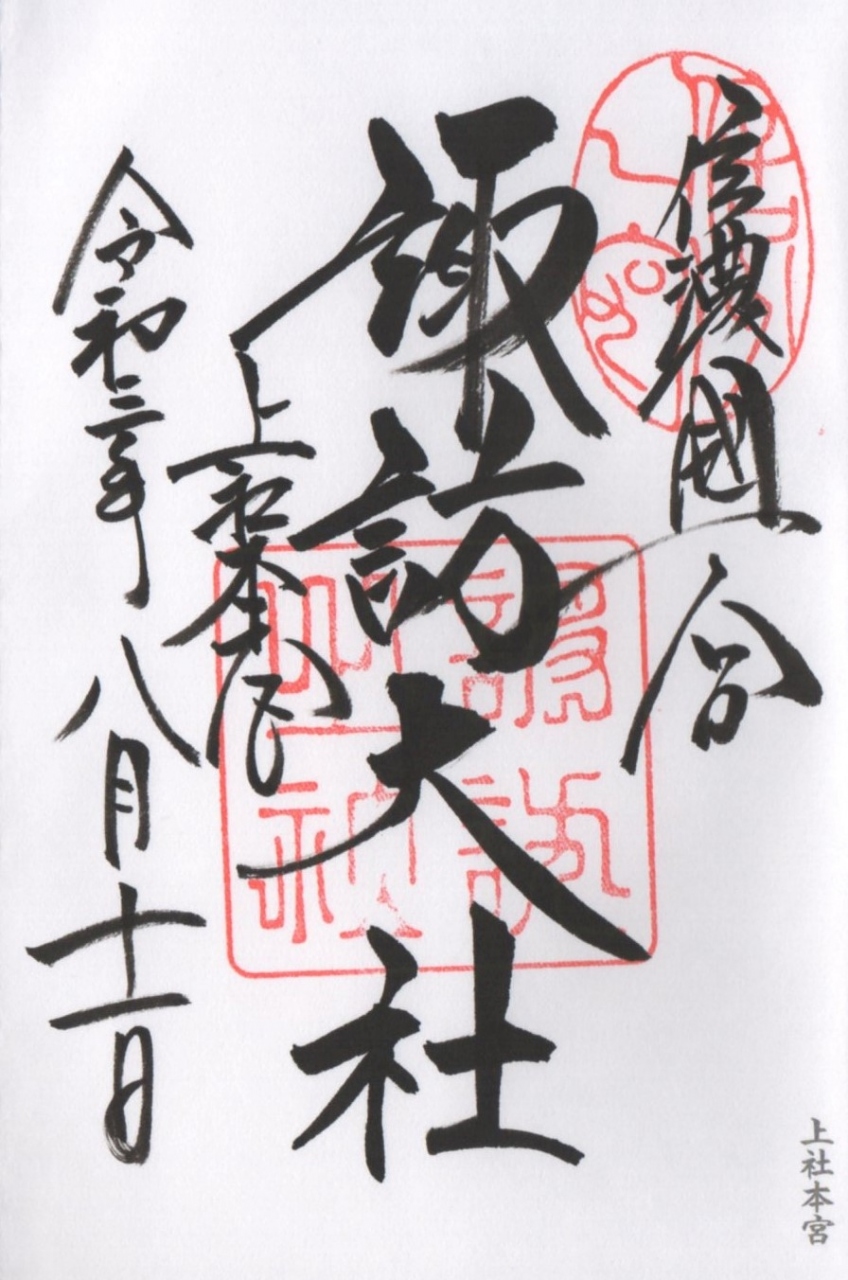 信濃國一宮
諏訪大社
上社本宮
令和三年八月十一日
上社本宮